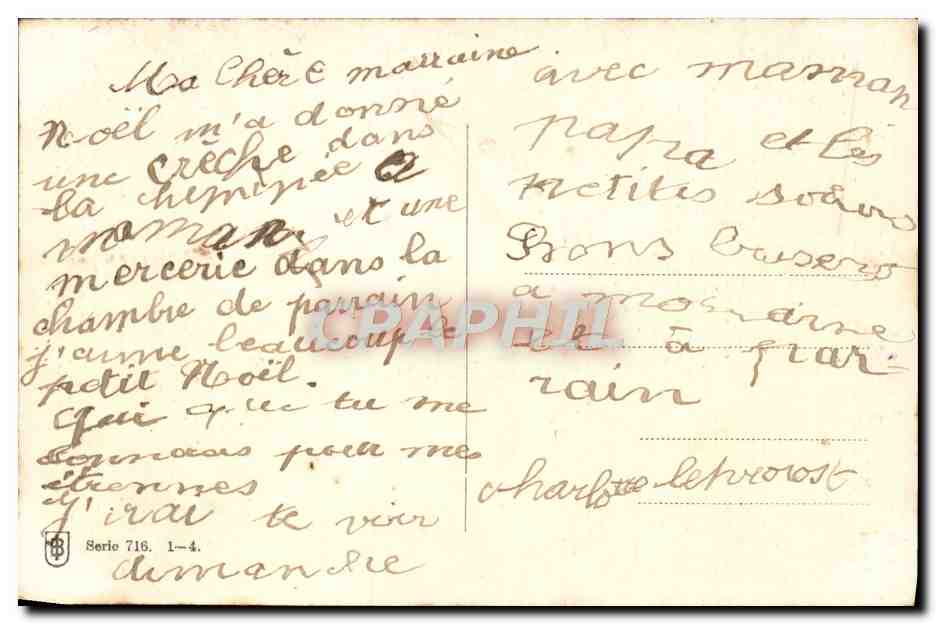 Ma Chère marraine
Noël m'a donné
une crêche dans
la cheminée a
maman et une
mercerie dans la
chambre de parrain
j'aime beaucoup le
petit Noël.
qui tu me
donneras pour mes
étrennes
J'irai te voir
dimanche
avec maman
papa et les
petites soeurs
Bons baisers
a marraine
et à par-
rain
Charlotte
CPAPHIL
Serie 716. 1—4.